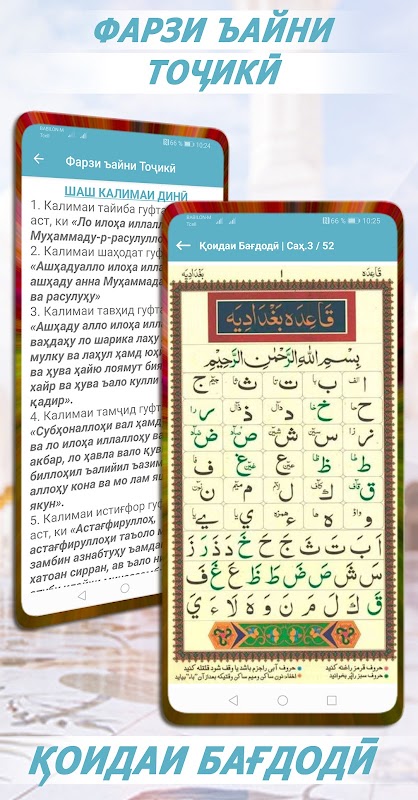 ФАРЗИ ЪАЙНИ
ТОҶИКӢ
BABILON-M
Tcell
66 % 10:24
Фарзи ъайни Тоҷикӣ
ШАШ КАЛИМАИ ДИНӢ
1. Калимаи тайиба гуфта
аст, ки «Ло илоҳа иллалл
Муҳаммаду-р-расулулло
2. Калимаи шаҳодат гуф
«Ашҳадуалло илоҳа илл
ашҳаду анна Муҳаммада
ва расулуҳу»
3. Калимаи тавҳид гуфт
«Ашҳаду алло илоҳа илл
ваҳдаҳу ло шарика лаҳу
мулку ва лаҳул ҳамд юҳ
ва ҳува ҳайю лоямут би
хайр ва ҳува ъало кулли
қадир».
4. Калимаи тамҷид гуф
«Субҳоналлоҳи вал ҳамд
ва ло илоҳа иллаллоҳу ва
акбар, ло ҳавла вало қув
биллоҳил ъалийил ъазим
аллоҳу кона ва мо лам я
якун».
5. Калимаи истиғфор гу
аст, ки «Астағфируллоҳ,
астағфируллоҳ таъоло м
замбин азнабтуҳу ъамда
хатоан сирран, ав ъало н
BABILON-M
Tcell
66 % 10:25
Қоидаи Бағдодӣ | Саҳ.3 / 52
قاعده ١ بغدادیه
قَاعِدَه بَغْدَادِیَه
بِسْمِ اللهِ الرَّحْمٰنِ الرَّحِیْمِ
ا ب ت ث ج
ح خ د ذ ر
ز س ش ص ض
ط ظ ع غ ف
ق ك ل م ن
و ه ء ي ے
ا ب ت ث ج ح خ د ذ ر ز
س ش ص ض ط ظ ع غ ف
ق ك ل م ن و ه لا ء ي
حروف قرمز راغنه کنید
حروف آبی راجزم باشد یا وقف شود قلقله کنید
حروف سبز راپر بخوانید
اخفاء نون ساکن ومیم ساکن وقتیکه بعداز آن "باء" بیاید
ҚОИДАИ БАҒДОДӢ